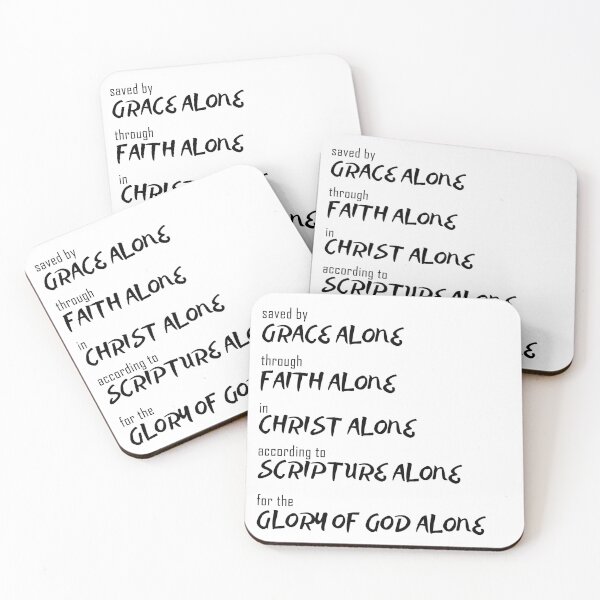 saved by
GRACE ALONE
through
FAITH ALONE
in
CHRIST
ALONE
saved by
GRACE ALONE
through
FAITH ALONE
in
CHRIST ALONE
according to
SCRIPTURE ALONE
saved by
GRACE ALONE
through
FAITH ALONE
in
CHRIST ALONE
according to
SCRIPTURE
for the
GLORY OF GOD
saved by
GRACE ALONE
through
FAITH ALONE
in
CHRIST ALONE
according to
SCRIPTURE ALONE
for the
GLORY OF GOD ALONE